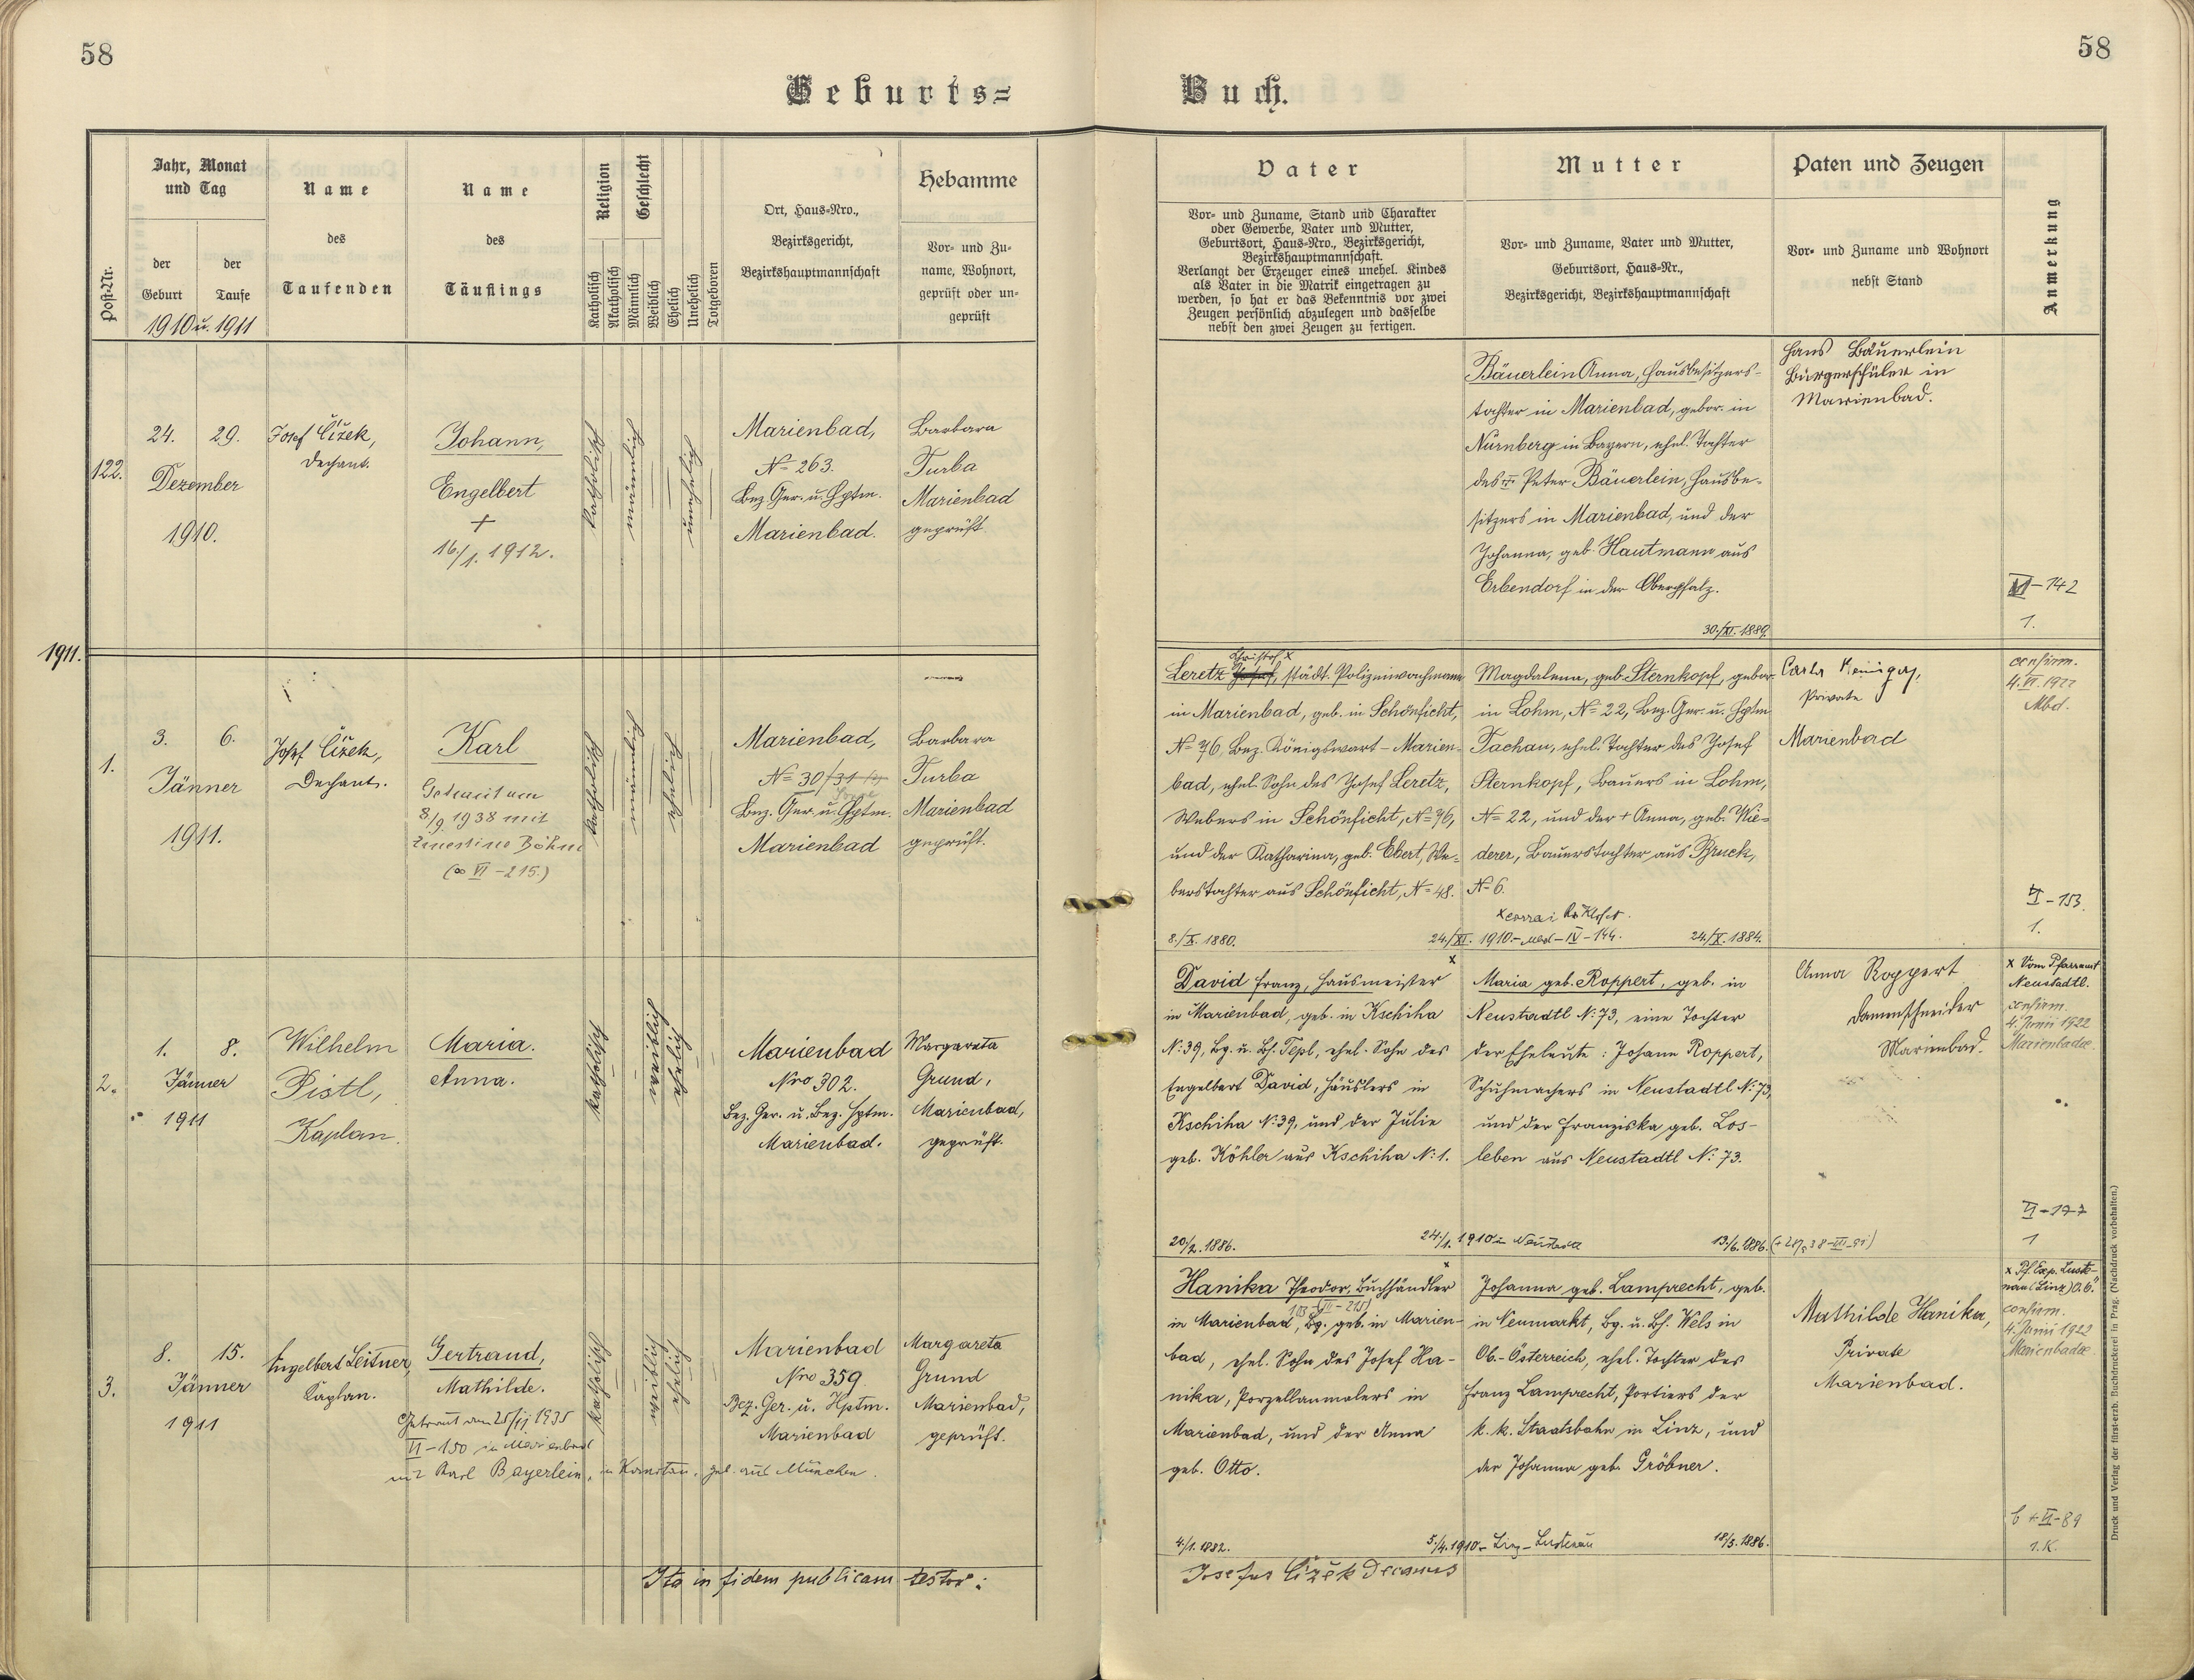 58
58
Geburts=
Buch.
Post-Nr.
Jahr, Monat
und Tag
der
Geburt
der
Taufe
1910 u. 1911
Name
des
Taufenden
Name
des
Täuflings
Religion
Katholisch
Akatholisch
Geschlecht
Männlich
Weiblich
Ehelich
Unehelich
Totgeboren
Ort, Haus=Nro.,
Bezirksgericht,
Bezirkshauptmannschaft
Hebamme
Vor= und Zu=
name, Wohnort,
geprüft oder un=
geprüft
Vater
Vor= und Zuname, Stand und Charakter
oder Gewerbe, Vater und Mutter,
Geburtsort, Haus=Nro., Bezirksgericht,
Bezirkshauptmannschaft.
Verlangt der Erzeuger eines unehel. Kindes
als Vater in die Matrik eingetragen zu
werden, so hat er das Bekenntnis vor zwei
Zeugen persönlich abzulegen und dasselbe
nebst den zwei Zeugen zu fertigen.
Mutter
Vor= und Zuname, Vater und Mutter,
Geburtsort, Haus=Nr.,
Bezirksgericht, Bezirkshauptmannschaft
Paten und Zeugen
Vor= und Zuname und Wohnort
nebst Stand
Anmerkung
122.
24.
29.
Dezember
1910.
Josef Čížek,
Dechant.
Johann,
Engelbert
+
16/1. 1912.
katholisch
männlich
unehelich
Marienbad,
No 263.
Bez. Ger. u. Hptm.
Marienbad.
Barbara
Turba
Marienbad
geprüft.
Bäuerlein Anna, Hausbesitzers-
tochter in Marienbad, gebor. in
Nürnberg in Bayern, ehel. Tochter
des Peter Bäuerlein, Hausbe-
sitzers in Marienbad, und der
Johanna, geb. Hautmann aus
Erbendorf in der Oberpfalz.
30./XI. 1889.
Hans Bäuerlein
Bürgerschüler in
Marienbad.
VI-142
1.
1911.
1.
3.
6.
Jänner
1911.
Josef Čížek,
Dechant.
Karl
Getraut am
8/9. 1938 mit
Ernestine Böhm
(∞ VI-215.)
katholisch
männlich
ehelich
Marienbad,
No 30/31
Bez. Ger. u. Hptm.
Marienbad
Barbara
Turba
Marienbad
geprüft.
Christof x
Leretz Josef, städt. Polizeiwachmann
in Marienbad, geb. in Schönficht,
No 76, Bez. Königswart-Marien-
bad, ehel. Sohn des Josef Leretz,
Webers in Schönficht, No 76,
und der Katharina, geb. Ebert, We-
berstochter aus Schönficht, No 48.
8./X. 1880.
Magdalena, geb. Sternkopf, gebor.
in Lohm, No 22, Bez. Ger. u. Hptm
Tachau, ehel. Tochter des Josef
Sternkopf, Bauers in Lohm,
No 22, und der + Anna, geb. Wie-
derer, Bauerstochter aus Bruck,
No 6.
24./XI. 1910.- Mbd-IV-144.
24./X. 1884.
Private
Marienbad
confirm.
4. VI. 1922
Mbd.
VI-153.
1.
2.
1.
8.
Jänner
1911
Wilhelm
Pistl,
Kaplan.
Maria.
Anna.
katholisch
weiblich
ehelich
Marienbad
Nro 302.
Bez. Ger. u. Bez. Hptm.
Marienbad.
Margareta
Grund,
Marienbad,
geprüft.
x
David Franz, Hausmeister
in Marienbad, geb. in Kschiha
No 39, Bg. u. Bh. Tepl, ehel. Sohn des
Engelbert David, Häuslers in
Kschiha No 39, und der Julie
geb. Köhler aus Kschiha No 1.
20/2. 1886.
Maria geb. Roppert, geb. in
Neustadtl No 73, eine Tochter
der Eheleute: Johann Roppert,
Schuhmachers in Neustadtl No 73,
und der Franziska geb. Los-
leben aus Neustadtl No 73.
24./1. 1910
13./6. 1886.
Anna Roppert
Damenschneider
Marienbad.
x Vom Pfarramt
Neustadtl.
confirm.
4. Junii 1922
Marienbadae.
VI-177
1
3.
8.
15.
Jänner
1911
Engelbert Leitner,
Kaplan.
Gertraud,
Mathilde.
Getraut am 25/ 1935
VI-150 in Marienbad
mit Karl Bayerlein, geb. aus München.
katholisch
weiblich
ehelich
Marienbad
Nro 359
Bez. Ger. u. Hptm.
Marienbad
Margareta
Grund
Marienbad,
geprüft.
x
Hanika Theodor, Buchhändler
in Marienbad, geb. in Marien-
bad, ehel. Sohn des Josef Ha-
nika, Porzellanmalers in
Marienbad, und der Anna
geb. Otto.
4/1. 1882.
Johanna geb. Lamprecht, geb.
in Neumarkt, Bg. u. Bh. Wels in
Ob.-Österreich, ehel. Tochter des
Franz Lamprecht, Portiers der
k. k. Staatsbahn in Linz, und
der Johanna geb. Gröbner.
5/4. 1910 - Linz-Lustenau
18/5. 1886.
Mathilde Hanika,
Private
Marienbad.
x Pf. Exp. Luste-
nau (Linz) O.Ö.
confirm.
4. Junii 1922
Marienbadae
VI-89
1.K.
Ita in fidem publicam testor:
Josefus Čížek Decanus
Druck und Verlag der fürst-erzb. Buchdruckerei in Prag. (Nachdruck vorbehalten.)